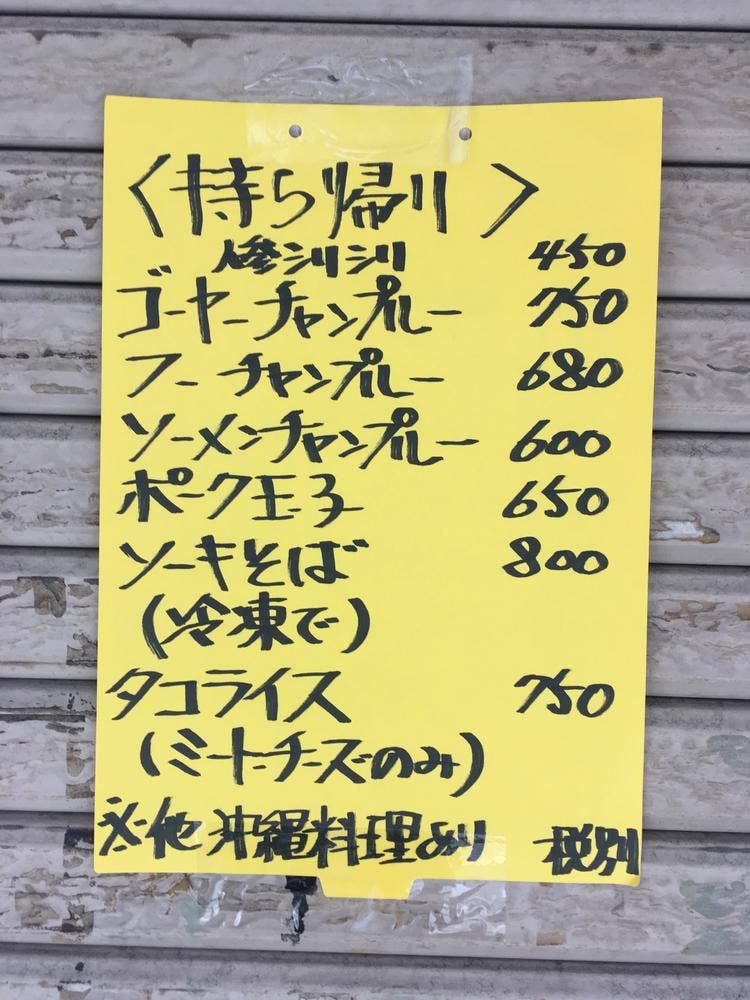 〈持ち帰り〉
人参シリシリ 450
ゴーヤーチャンプルー 750
フーチャンプルー 680
ソーメンチャンプルー 600
ポーク玉子 650
ソーキそば 800
(冷凍で)
タコライス 750
(ミートチーズのみ)
※他沖縄料理あり 税別